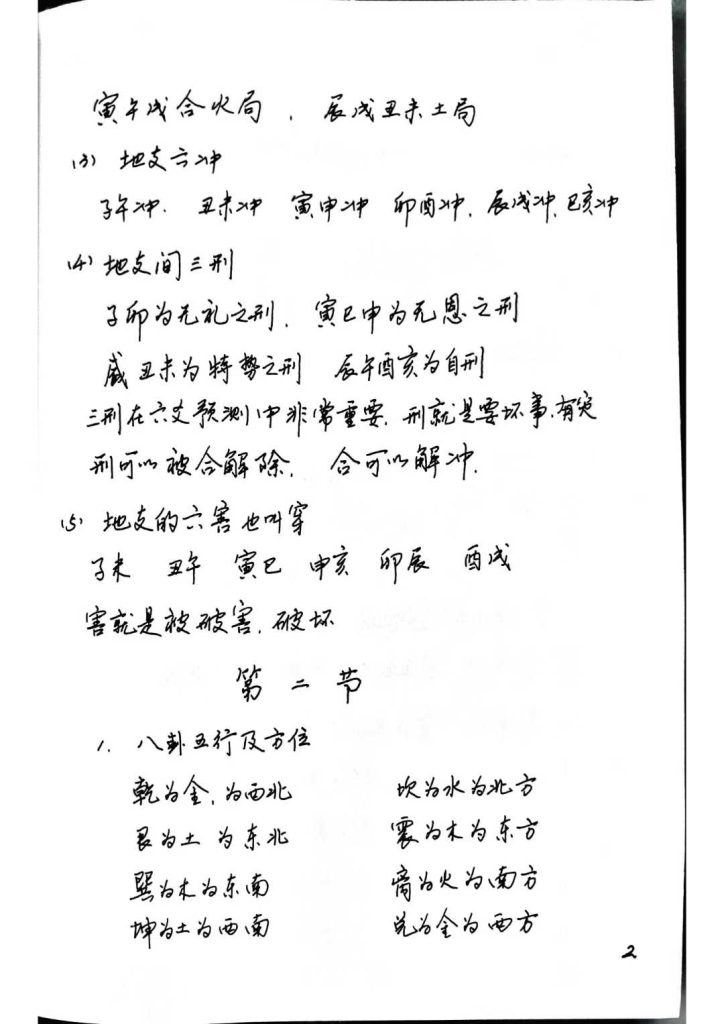 寅午戌合火局,辰戌丑未土局
(3) 地支六冲
子午冲. 丑未冲 寅申冲 卯酉冲,辰戌冲,巳亥冲
(4) 地支间三刑
子卯为无礼之刑,寅巳申为无恩之刑
丑未为特势之刑 辰午酉亥为自刑
三刑在六爻预测中非常重要,刑就是要坏事,有灾
刑可以被合解除, 合可以解冲.
(5) 地支的六害也叫穿
子未 丑午 寅巳 申亥 卯辰 酉戌
害就是被破害,破坏
第二节
1. 八卦五行及方位
乾为金,为西北 坎为水为北方
艮为土 为东北 震为木为东方
巽为木为东南 离为火为南方
坤为土为西南 兑为金为西方
2